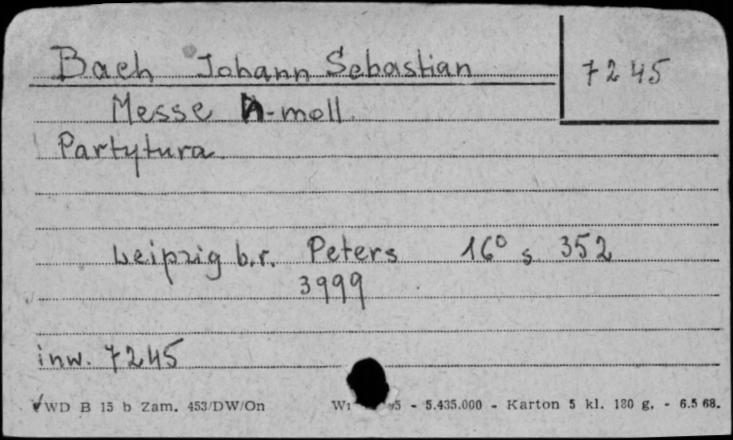 Bach Johann Sebastian
7245
Messe h-moll.
Partytura.
Leipzig b.r. Peters 16° s 352
3999
inw. 7245
WD B 15 b Zam. 453/DW/On - 5.435.000 - Karton 5 kl. 180 g. - 6.5 68.